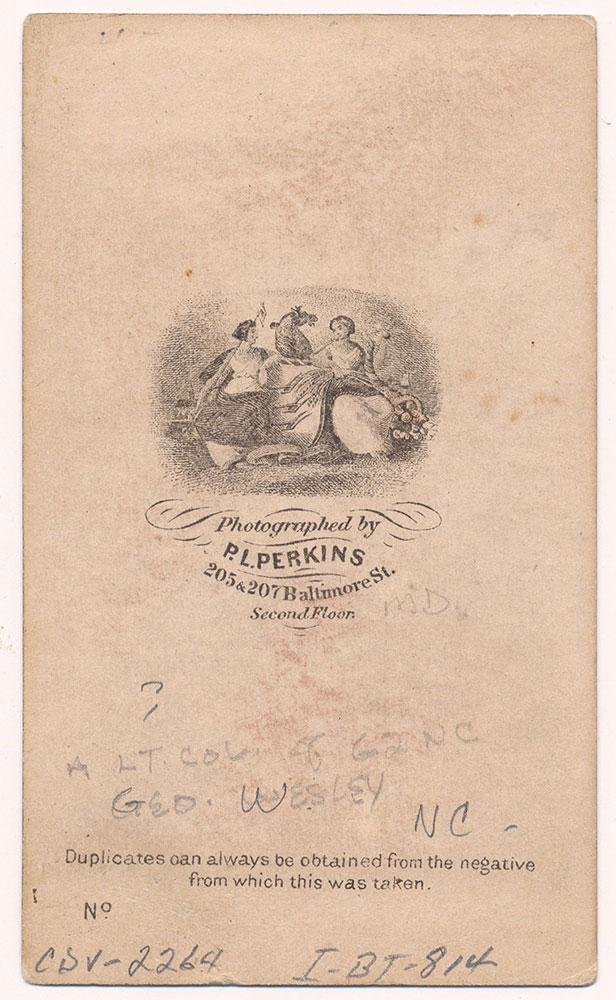 Photographed by
P.L.PERKINS
205 & 207 Baltimore St.
Second Floor.
MD.
?
A LT. COL. of 62 NC
GEO. WESLEY
NC -
Duplicates can always be obtained from the negative
from which this was taken.
Nº
CDV-2264 I-BJ-814